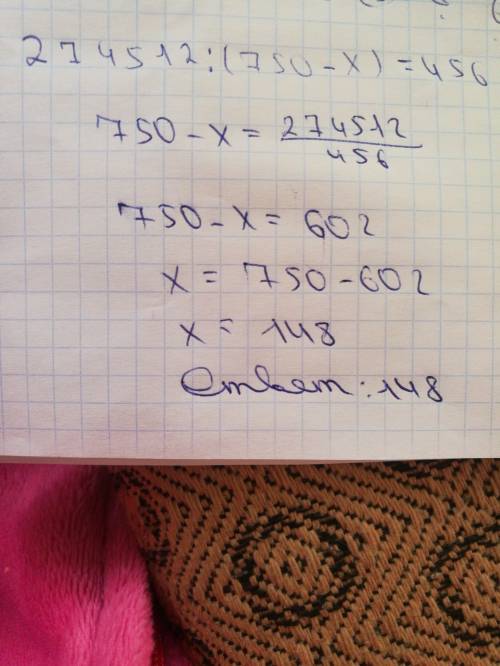 274512:(750-x)=456
750-x=274512/456
750-x=602
x=750-602
x=148
Ответ:148